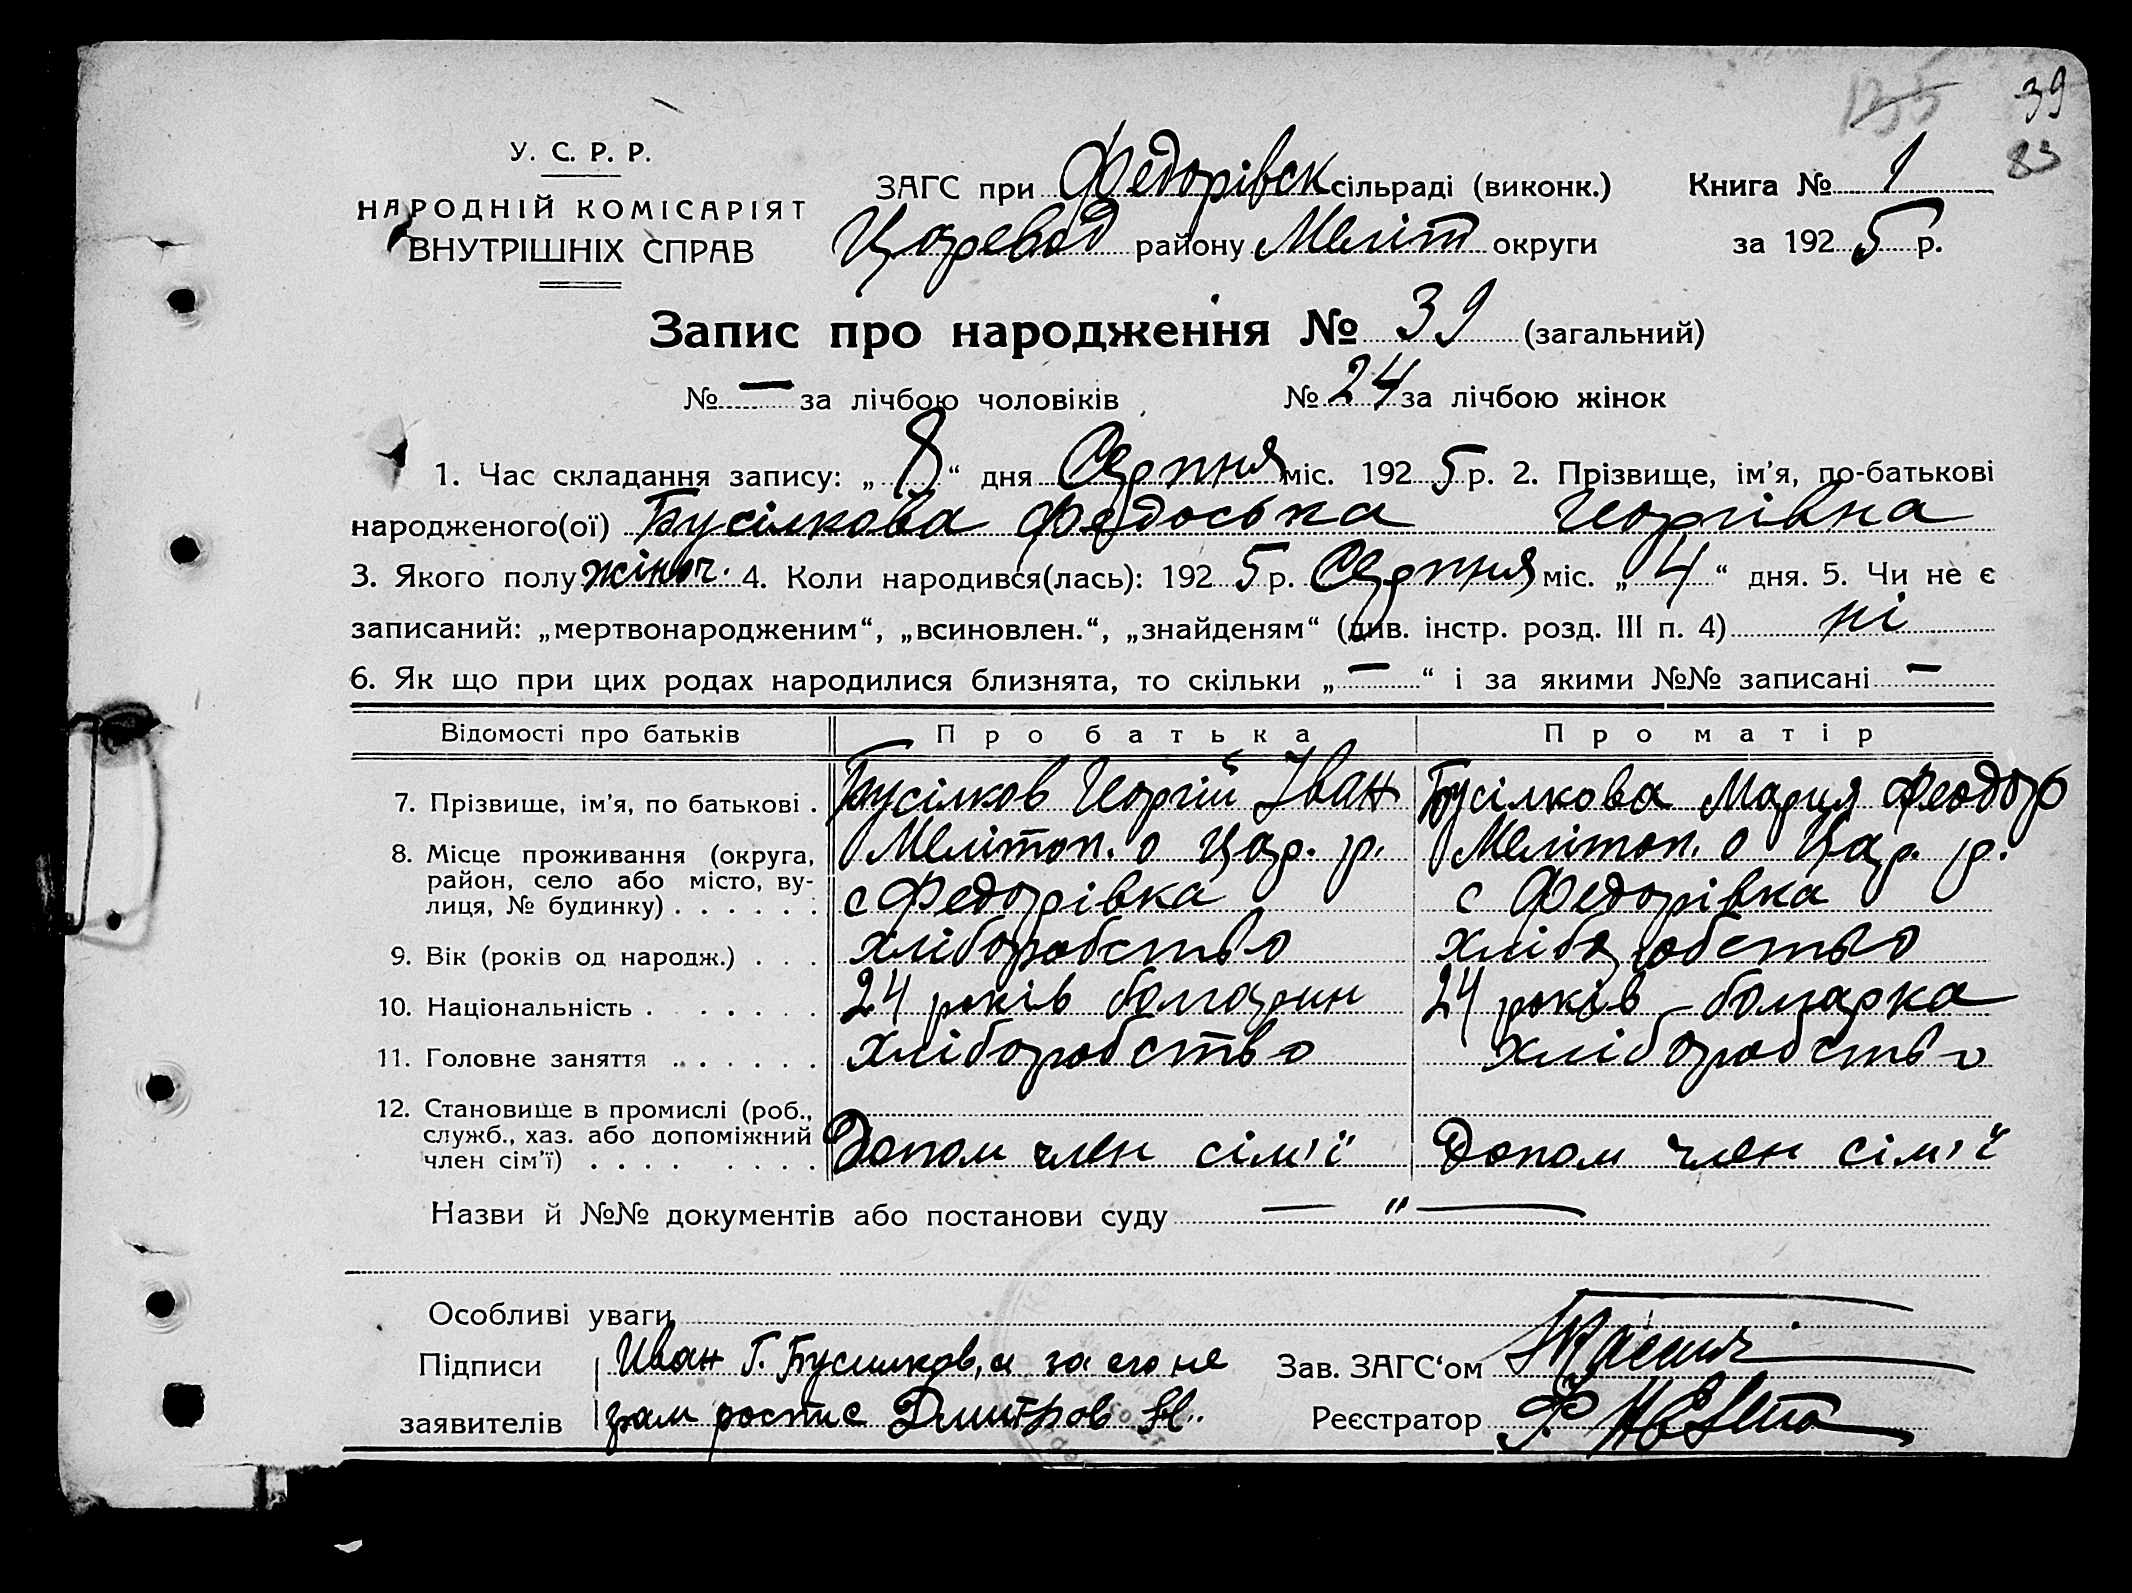 135 39
83
У. С. Р. Р.
НАРОДНІЙ КОМІСАРІЯТ
ВНУТРІШНІХ СПРАВ
ЗАГС при Федорівск сільраді (виконк.) Книга № 1
Царевод району Меліт округи за 1925 р.
Запис про народження № 39 (загальний)
№ — за лічбою чоловіків № 24 за лічбою жінок
1. Час складання запису: „8“ дня Серпня міс. 1925 р. 2. Прізвище, ім'я, по-батькові
народженого(ої) Бусілкова Федоська Георгівна
3. Якого полу жіноч. 4. Коли народився(лась): 1925 р. Серпня міс. „4“ дня. 5. Чи не є
записаний: „мертвонародженим“, „всиновлен.“, „знайденям“ (див. інстр. розд. III п. 4) ні
6. Як що при цих родах народилися близнята, то скільки „—“ і за якими №№ записані —
Відомості про батьків Про батька Про матір
7. Прізвище, ім'я, по батькові . Бусілков Георгій Іван Бусілкова Мария Феодор
8. Місце проживання (округа, Мелітоп. о Цар. р. Мелітоп. о Цар. р.
район, село або місто, ву-
лиця, № будинку) . . . . . . с Федорівка с Федорівка
9. Вік (років од народж.) . . . хліборобство хліборобство
10. Національність . . . . . . 24 років болгарин 24 років – болгарка
11. Головне заняття . . . . . . хліборобство хліборобство
12. Становище в промислі (роб.,
служб., хаз. або допоміжний
член сім'ї) . . . . . . . . Допом член сім'ї Допом член сім'ї
Назви й №№ документів або постанови суду — " —
Особливі уваги
Підписи Иван Г. Бусилков, а за его не Зав. ЗАГС'ом
заявителів грам роспис Дмитров Реєстратор